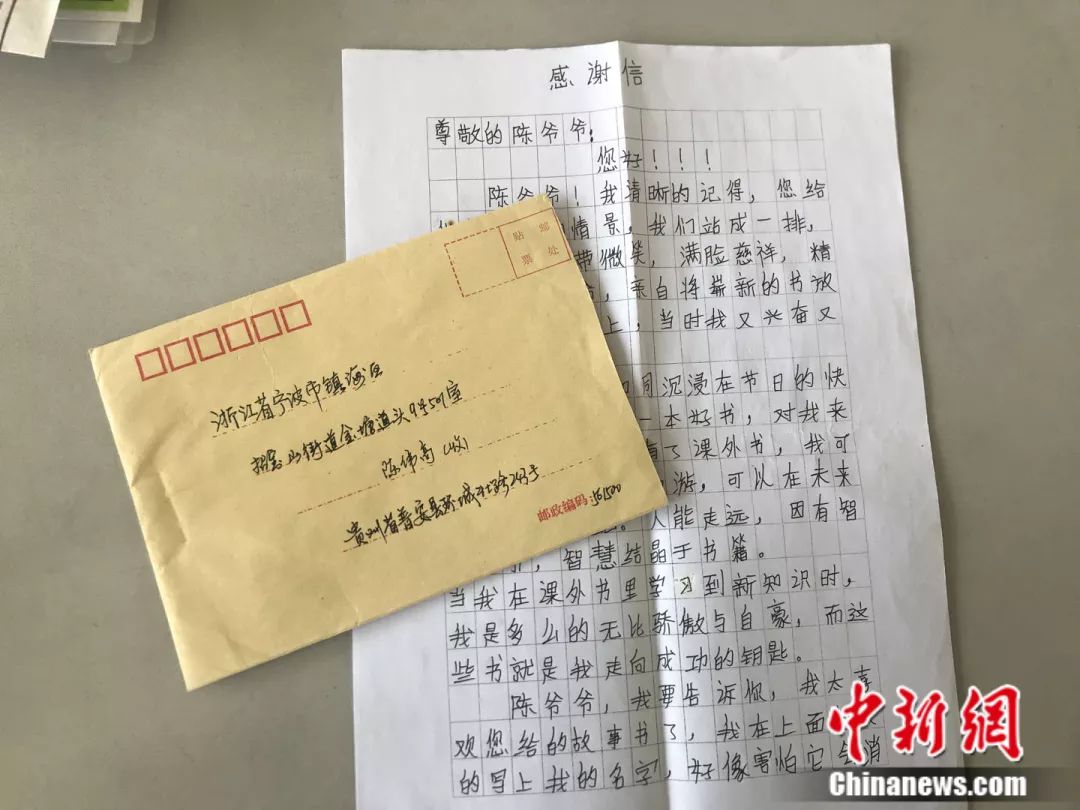 感谢信
尊敬的陈爷爷：
您好！！！
陈爷爷！我清晰的记得，您给
情景，我们站成一排，
带微笑，满脸慈祥，精
亲自将崭新的书放
上，当时我又兴奋又
同沉浸在节日的快
一本好书，对我来
有了课外书，我可
游，可以在未来
人能走远，因有智
，智慧结晶于书籍。
当我在课外书里学习到新知识时，
我是多么的无比骄傲与自豪，而这
些书就是我走向成功的钥匙。
陈爷爷，我要告诉你，我太喜
欢您给的故事书了，我在上面
的写上我的名字，好像害怕它会消
贴邮
票处
浙江省宁波市镇海区
招宝山街道金塘道头9号501室
陈伟高（收）
贵州省普安县环城社路243号
邮政编码：561500
中新網
Chinanews.com